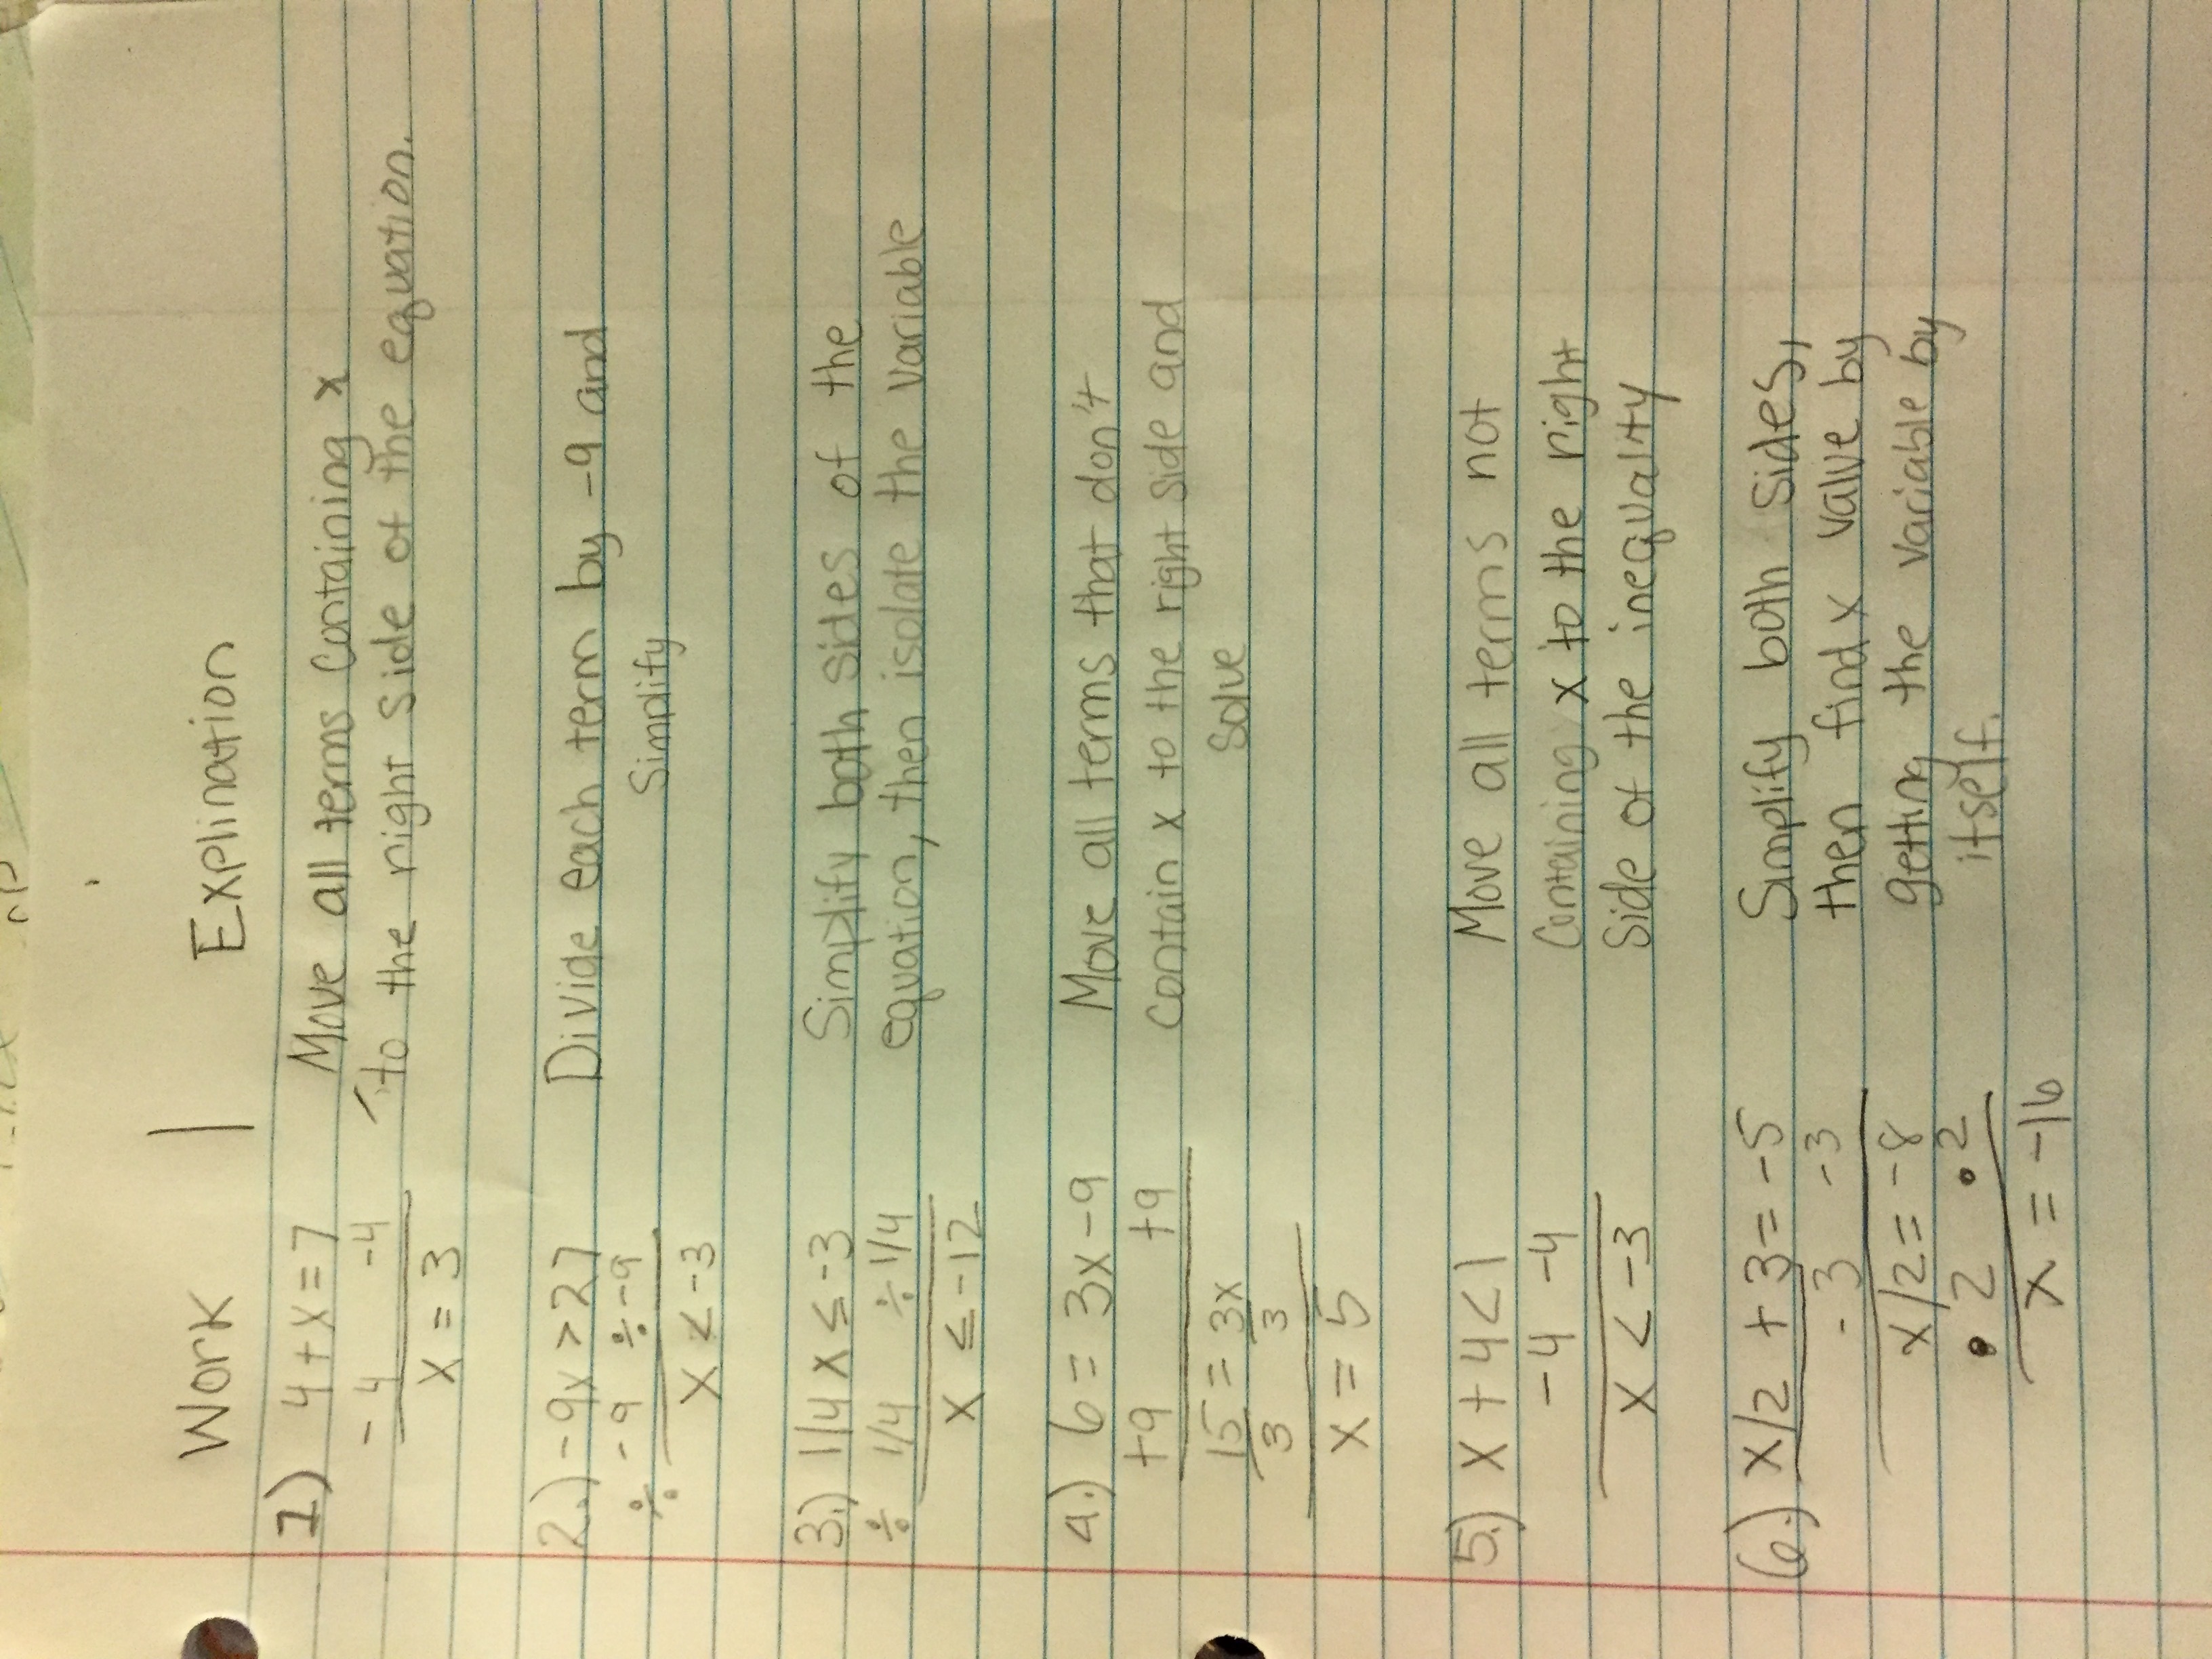 Work | Explination
1) 4 + x = 7 Move all terms containing x
- 4 -4 to the right side of the equation.
x = 3
2.) -9x > 27 Divide each term by -9 and
÷ -9 ÷ -9 Simplify
x < -3
3.) 1/4 x ≤ -3 Simplify both sides of the
÷ 1/4 ÷ 1/4 equation, then isolate the variable
x ≤ -12
4.) 6 = 3x - 9 Move all terms that don't
+9 +9 contain x to the right side and
15/3 = 3x/3 Solve
x = 5
5.) x + 4 < 1 Move all terms not
- 4 -4 Containing x to the right
x < -3 Side of the inequality
6.) x/2 + 3 = -5 Simplify both sides,
- 3 -3 then find x value by
x/2 = -8 getting the variable by
• 2 • 2 itself.
x = -16